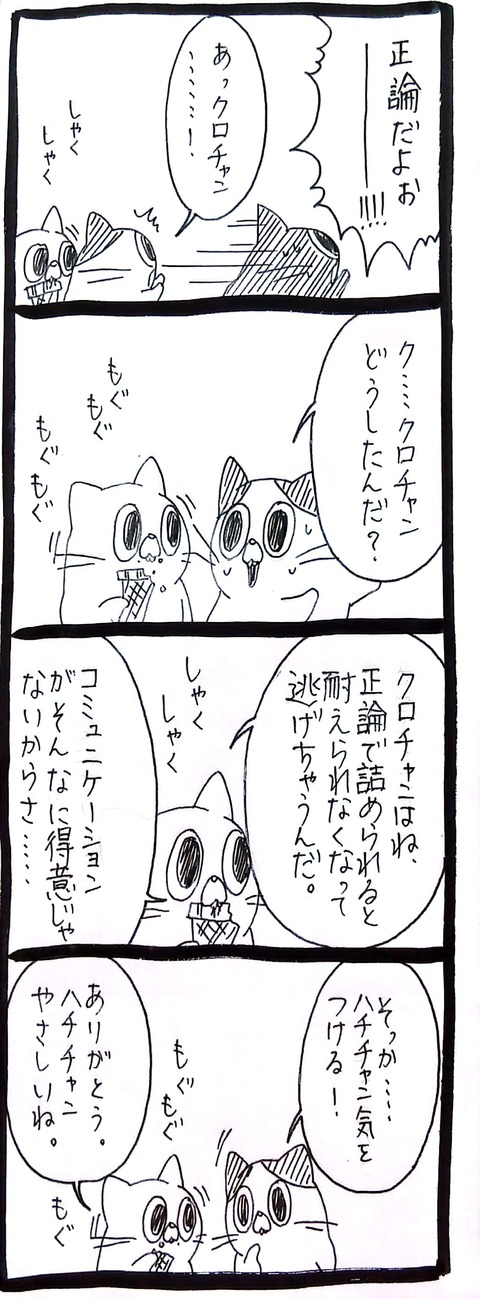 正論だよぉ
━━━!!!!
あっクロチャン
……！
しゃく
しゃく
ク……クロチャン
どうしたんだ？
もぐ
もぐ
もぐ
もぐ
クロチャンはね、
正論で詰められると
耐えられなくなって
逃げちゃうんだ。
しゃく
しゃく
コミュニケーション
がそんなに得意じゃ
ないからさ……
そっか……
ハチチャン気を
つける！
もぐ
もぐ
ありがとう。
ハチチャン
やさしいね。
もぐ